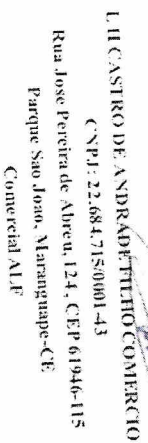 L H CASTRO DE ANDRADE FILHO COMERCIO
CNPJ: 22.684.715/0001-43
Rua Jose Pereira de Abreu, 124, CEP 61946-115
Parque Sao Joao, Maranguape-CE
Comercial ALF